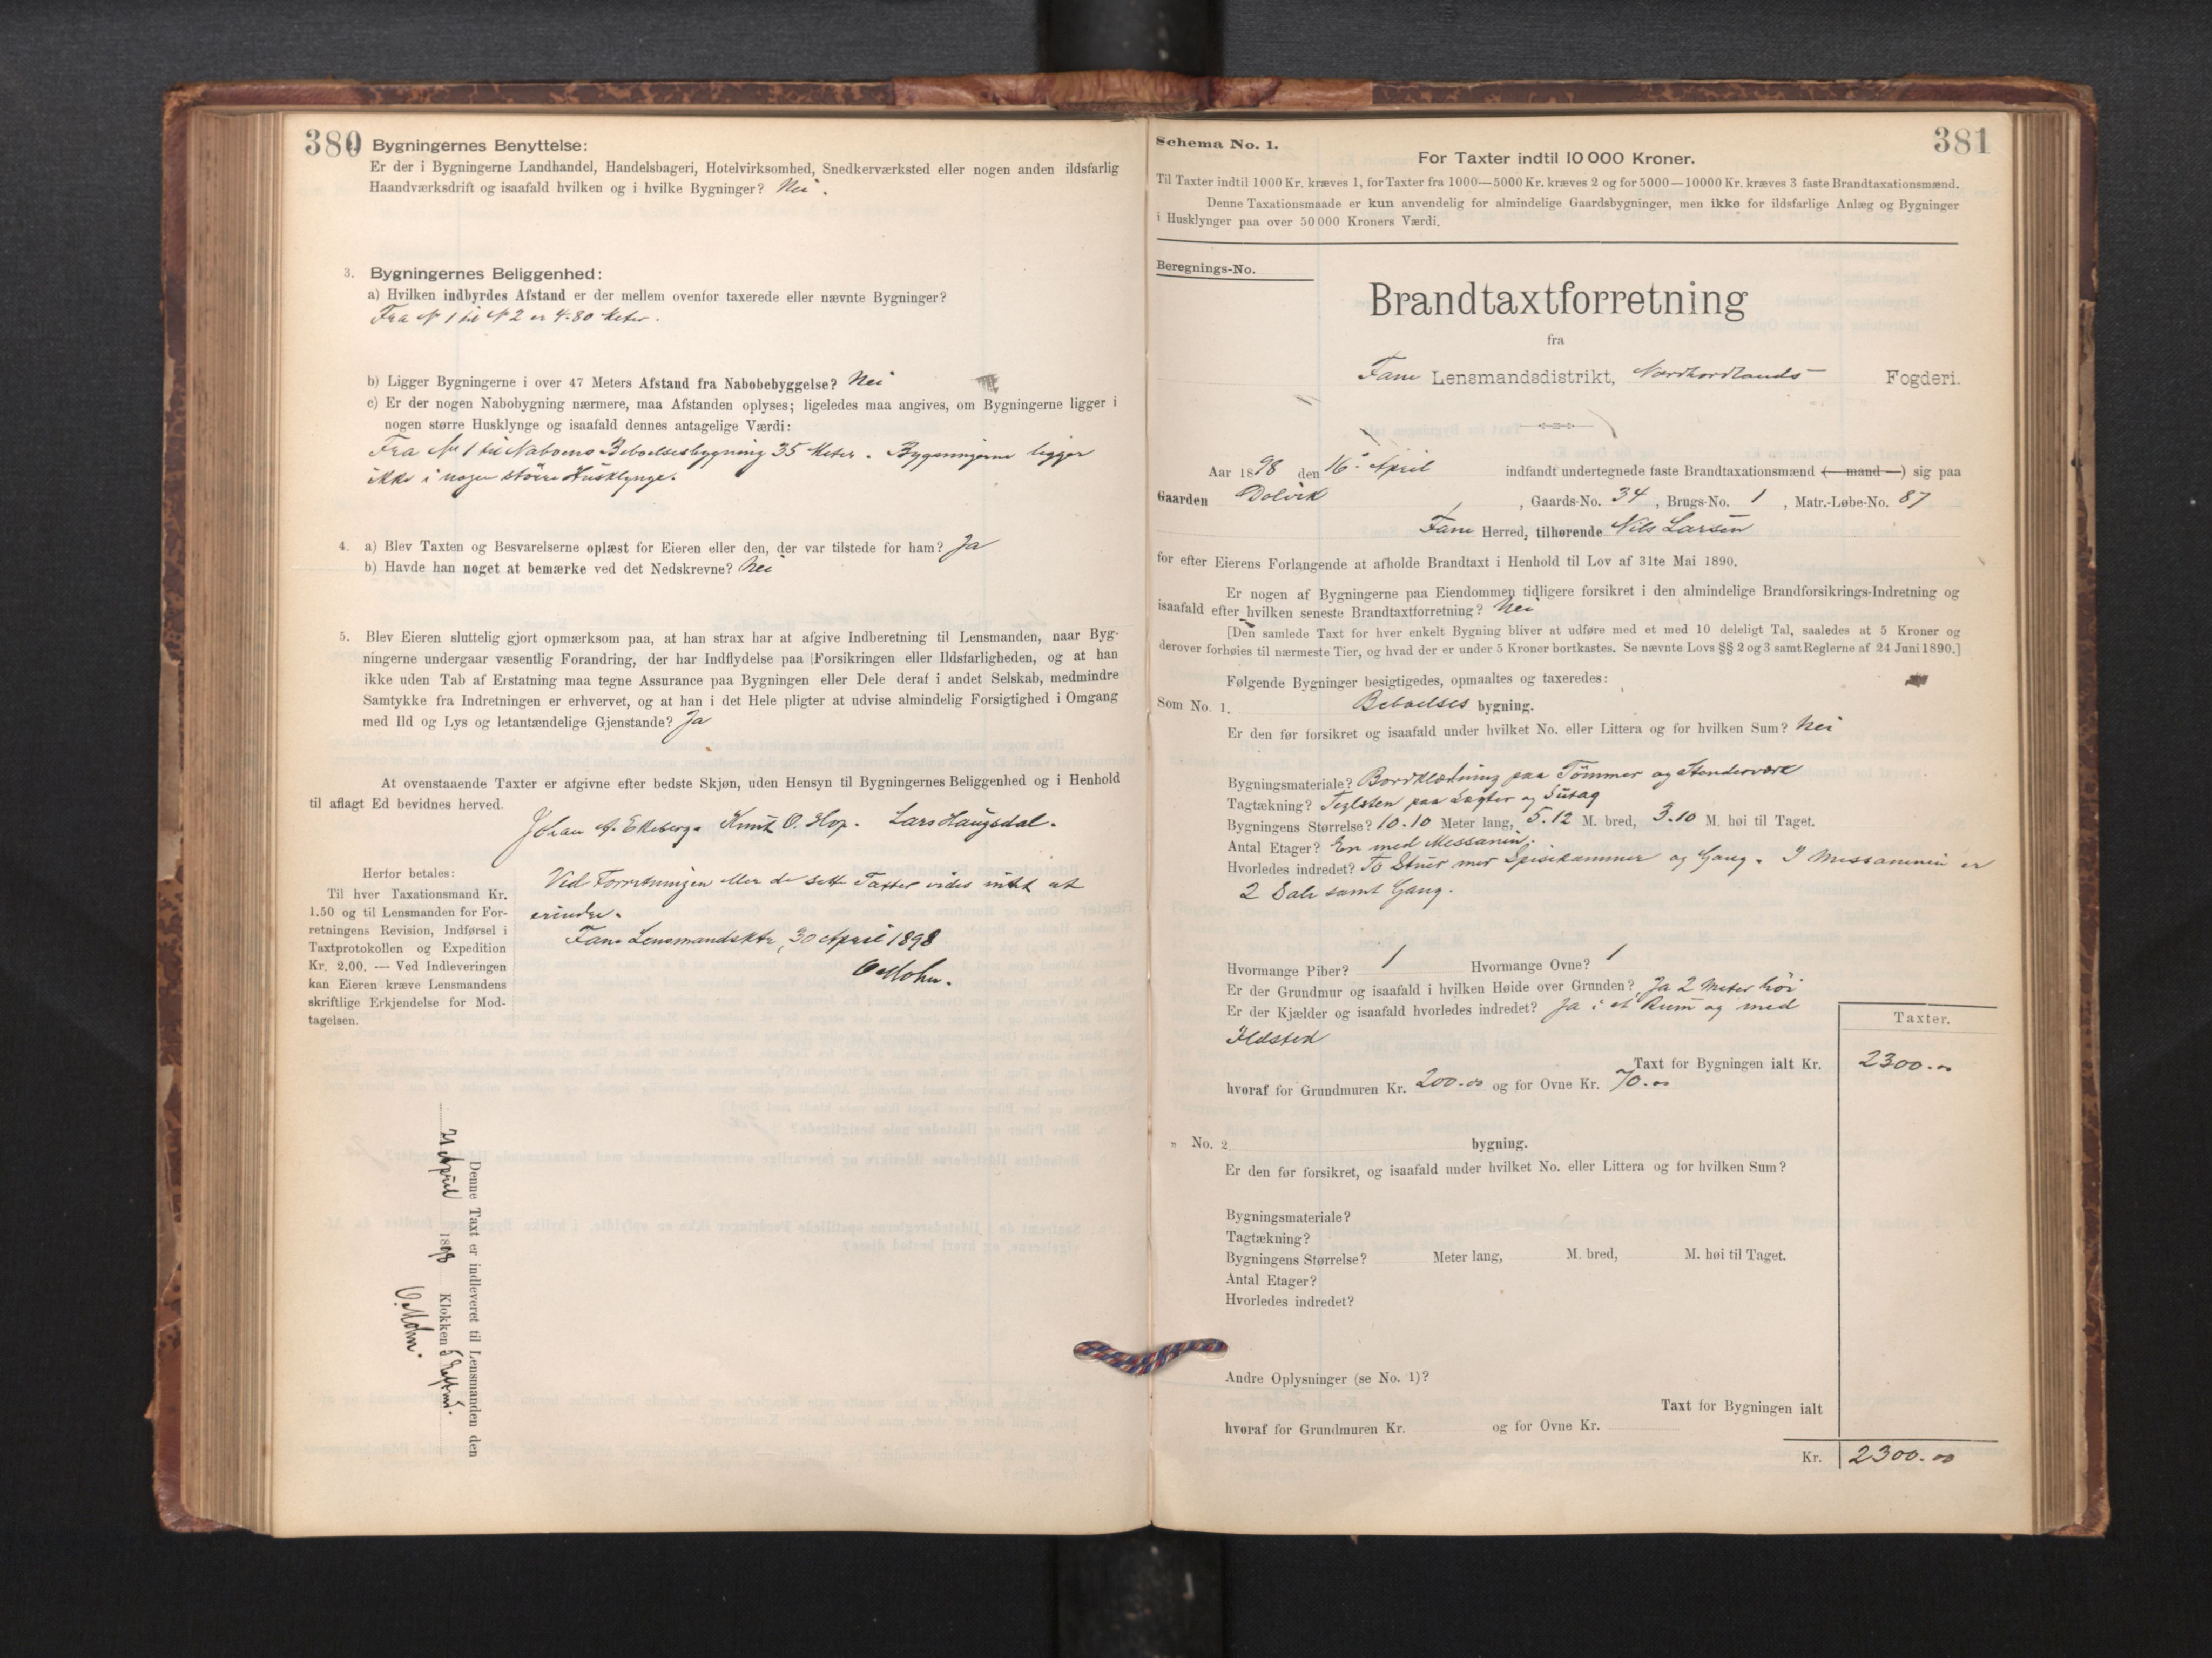 380
Bygningernes Benyttelse:
Er der i Bygningerne Landhandel, Handelsbageri, Hotelvirksomhed, Snedkerværksted eller nogen anden ildsfarlig
Haandværksdrift og isaafald hvilken og i hvilke Bygninger? Nei.
3. Bygningernes Beliggenhed:
a) Hvilken indbyrdes Afstand er der mellem ovenfor taxerede eller nævnte Bygninger?
Fra N 1 til N 2 er 4.80 Meter.
b) Ligger Bygningerne i over 47 Meters Afstand fra Nabobebyggelse? Nei
c) Er der nogen Nabobygning nærmere, maa Afstanden oplyses; ligeledes maa angives, om Bygningerne ligger i
nogen større Husklynge og isaafald dennes antagelige Værdi:
Fra No 1 til Naboens Beboelsesbygning 35 Meter. Bygningerne ligger
ikke i nogen større Husklynge.
4. a) Blev Taxten og Besvarelserne oplæst for Eieren eller den, der var tilstede for ham? Ja
b) Havde han noget at bemærke ved det Nedskrevne? Nei
5. Blev Eieren sluttelig gjort opmærksom paa, at han strax har at afgive Indberetning til Lensmanden, naar Byg-
ningerne undergaar væsentlig Forandring, der har Indflydelse paa Forsikringen eller Ildsfarligheden, og at han
ikke uden Tab af Erstatning maa tegne Assurance paa Bygningen eller Dele deraf i andet Selskab, medmindre
Samtykke fra Indretningen er erhvervet, og at han i det Hele pligter at udvise almindelig Forsigtighed i Omgang
med Ild og Lys og letantændelige Gjenstande? Ja
At ovenstaaende Taxter er afgivne efter bedste Skjøn, uden Hensyn til Bygningernes Beliggenhed og i Henhold
til aflagt Ed bevidnes herved.
Johan A. Ekeberg. Knut O. Hop. Lars Haugsdal.
Herfor betales:
Til hver Taxationsmand Kr.
1.50 og til Lensmanden for For-
retningens Revision, Indførsel i
Taxtprotokollen og Expedition
Kr. 2.00. — Ved Indleveringen
kan Eieren kræve Lensmandens
skriftlige Erkjendelse for Mod-
tagelsen.
Ved Forretningen eller de satte Taxter vides intet at
erindre.
Fane Lensmandsktr, 30 April 1898
O Mohn.
Denne Taxt er indleveret til Lensmanden den
21 April 1898 Klokken 5 Efterm.
O. Mohn.
381
Schema No. 1.
For Taxter indtil 10 000 Kroner.
Til Taxter indtil 1000 Kr. kræves 1, for Taxter fra 1000—5000 Kr. kræves 2 og for 5000—10000 Kr. kræves 3 faste Brandtaxationsmænd.
Denne Taxationsmaade er kun anvendelig for almindelige Gaardsbygninger, men ikke for ildsfarlige Anlæg og Bygninger
i Husklynger paa over 50 000 Kroners Værdi.
Beregnings-No.
Brandtaxtforretning
fra
Fane Lensmandsdistrikt, Nordhordlands Fogderi.
Aar 1898 den 16de April indfandt undertegnede faste Brandtaxationsmænd (—mand—) sig paa
Gaarden Dolvik, Gaards-No. 34, Brugs-No. 1, Matr.-Løbe-No. 87
Fane Herred, tilhørende Nils Larsen
for efter Eierens Forlangende at afholde Brandtaxt i Henhold til Lov af 31te Mai 1890.
Er nogen af Bygningerne paa Eiendommen tidligere forsikret i den almindelige Brandforsikrings-Indretning og
isaafald efter hvilken seneste Brandtaxtforretning? Nei
[Den samlede Taxt for hver enkelt Bygning bliver at udføre med et med 10 deleligt Tal, saaledes at 5 Kroner og
derover forhøies til nærmeste Tier, og hvad der er under 5 Kroner bortkastes. Se nævnte Lovs §§ 2 og 3 samt Reglerne af 24 Juni 1890.]
Følgende Bygninger besigtigedes, opmaaltes og taxeredes:
Som No. 1. Beboelses bygning.
Er den før forsikret og isaafald under hvilket No. eller Littera og for hvilken Sum? Nei
Bygningsmateriale? Bordklædning paa Tømmer og Stenderværk
Tagtækning? Teglsten paa Lægter og Sutag
Bygningens Størrelse? 10.10 Meter lang, 5.12 M. bred, 3.10 M. høi til Taget.
Antal Etager? En med Messanin.
Hvorledes indredet? To Stuer med Spisekammer og Gang. I Messaninen er
2 Sale samt Gang.
Hvormange Piber? 1 Hvormange Ovne? 1
Er der Grundmur og isaafald i hvilken Høide over Grunden? Ja 2 Meter høi
Er der Kjælder og isaafald hvorledes indredet? Ja i et Rum og med
Ildsted
Taxter.
Taxt for Bygningen ialt Kr. 2300.00
hvoraf for Grundmuren Kr. 200.00 og for Ovne Kr. 70.00
„ No. 2 bygning.
Er den før forsikret, og isaafald under hvilket No. eller Littera og for hvilken Sum?
Bygningsmateriale?
Tagtækning?
Bygningens Størrelse? Meter lang, M. bred, M. høi til Taget.
Antal Etager?
Hvorledes indredet?
Andre Oplysninger (se No. 1)?
Taxt for Bygningen ialt
hvoraf for Grundmuren Kr. og for Ovne Kr.
Kr. 2300.00